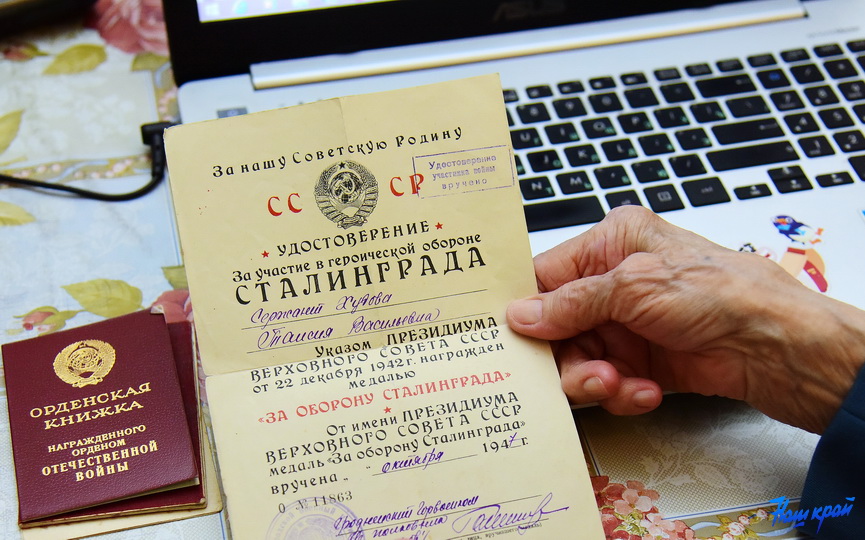 ASUS
За нашу Советскую Родину
СССР
Удостоверение
участника войны
вручено
УДОСТОВЕРЕНИЕ
За участие в героической обороне
СТАЛИНГРАДА
Сержант Худова
(Таисия Васильевна)
Указом ПРЕЗИДИУМА
ВЕРХОВНОГО СОВЕТА СССР
от 22 декабря 1942 г. награжден
медалью
«ЗА ОБОРОНУ СТАЛИНГРАДА»
От имени ПРЕЗИДИУМА
ВЕРХОВНОГО СОВЕТА СССР
медаль «За оборону Сталинграда»
вручена „ “ октября 1947 г.
О № 11863
Гродненский Горвоенком
ОРДЕНСКАЯ
КНИЖКА
НАГРАЖДЕННОГО
ОРДЕНОМ
ОТЕЧЕСТВЕННОЙ
ВОЙНЫ
Наш край